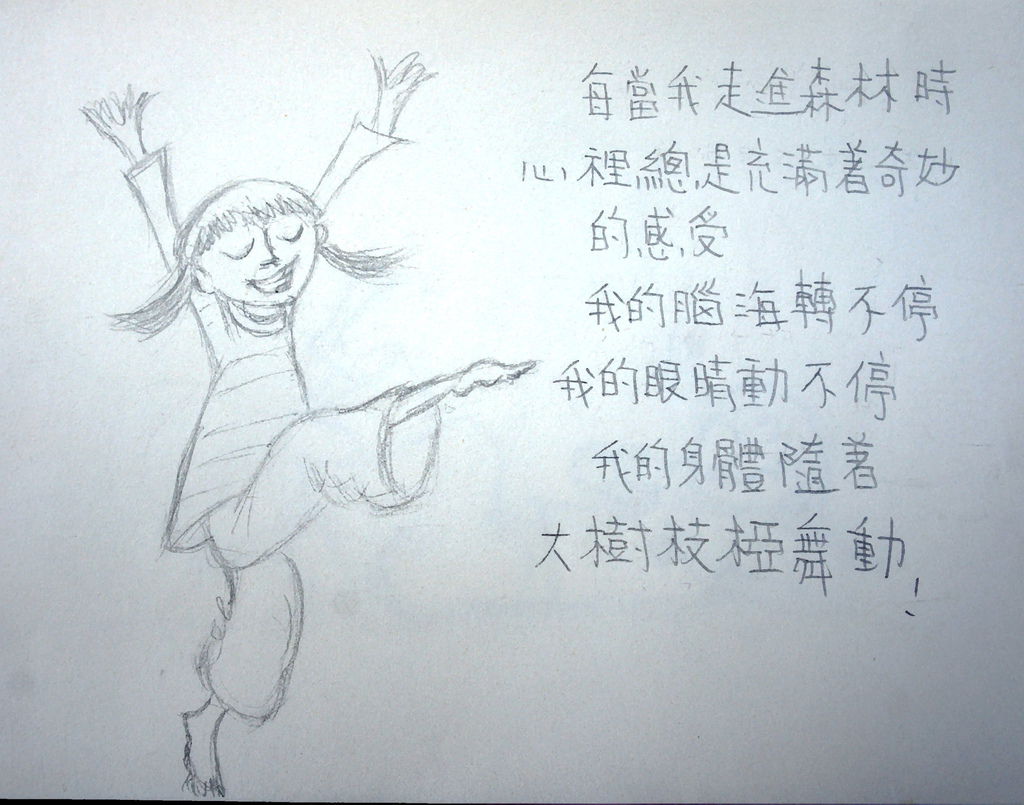 每當我走進森林時
心裡總是充滿著奇妙
的感受
我的腦海轉不停
我的眼睛動不停
我的身體隨著
大樹枝椏舞動!